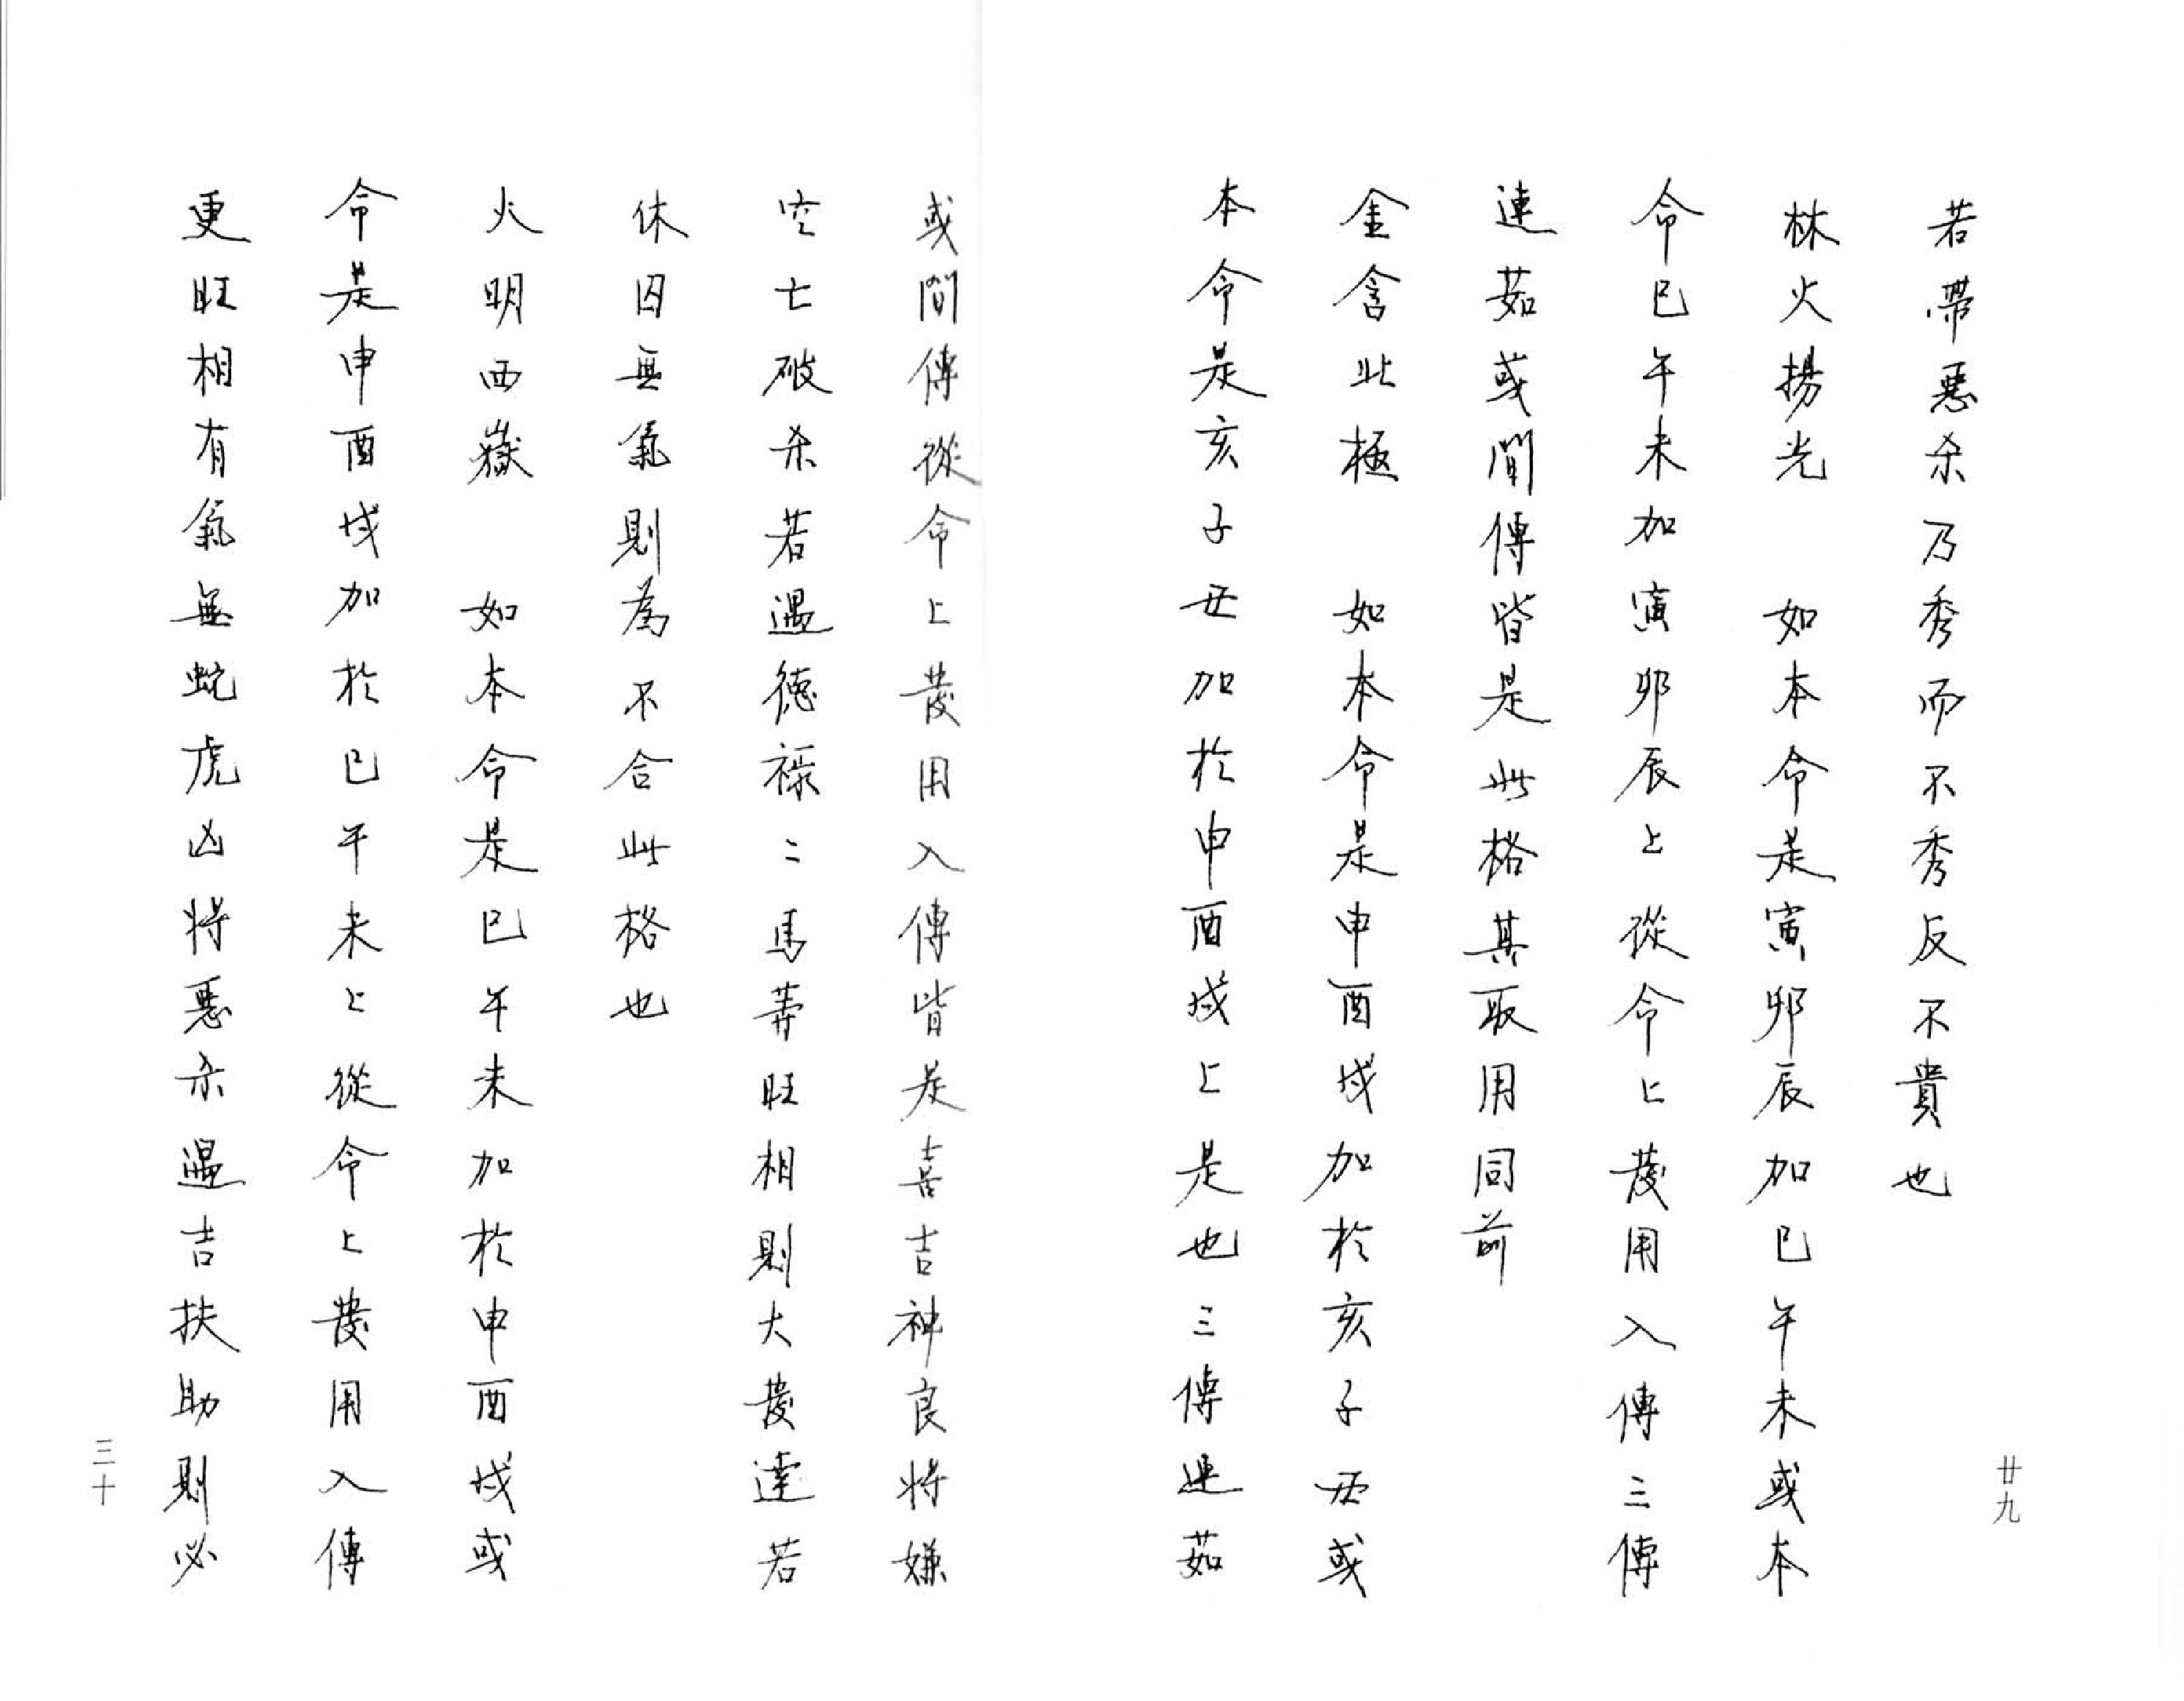 若帶惡杀乃秀而不秀反不貴也
林火揚光　如本命是寅卯辰加巳午未或本
命巳午未加寅卯辰上從命上發用入傳三傳
連茹或間傳皆是此格其取用同前
金含北極　如本命是申酉戌加於亥子丑或
本命是亥子丑加於申酉戌上是也三傳連茹
廿九
或間傳從命上發用入傳皆是喜吉神良將嫌
空亡破杀若遇德祿二馬幷旺相則大發達若
休囚無氣則為不合此格也
火明西嶽　如本命是巳午未加於申酉戌或
命是申酉戌加於巳午未上從命上發用入傳
更旺相有氣無蛇虎凶將惡杀遇吉扶助則必
三十